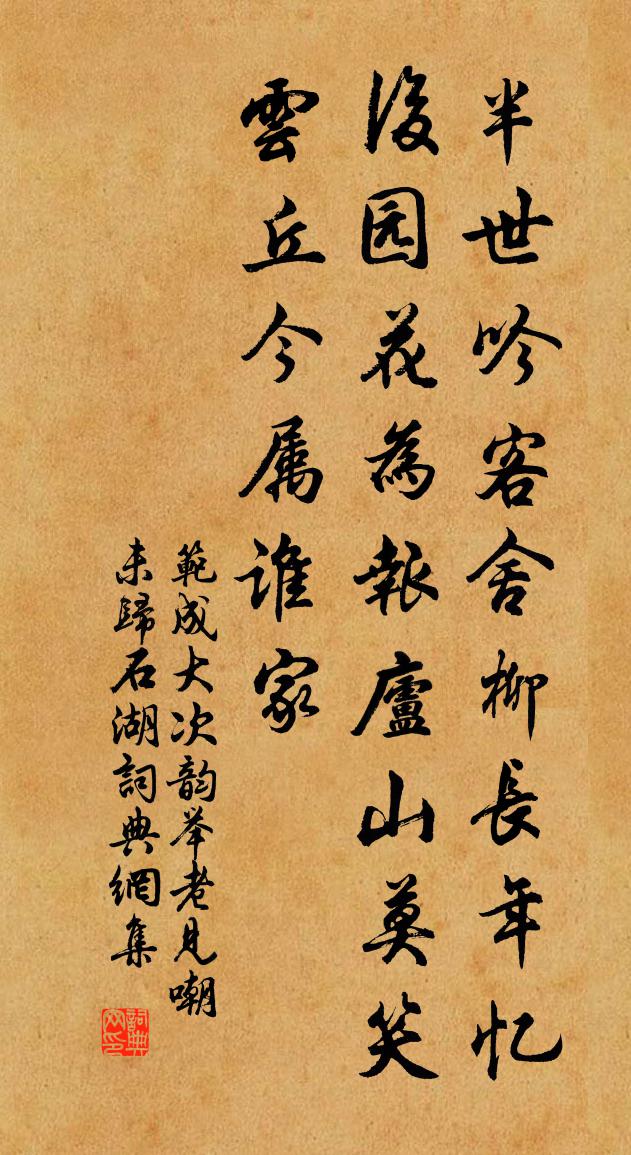 半世吟客舍柳長年忆
後园花為報廬山莫笑
雲丘今属谁家
範成大次韵举老見嘲
未歸石湖詞典網集
詞典网印